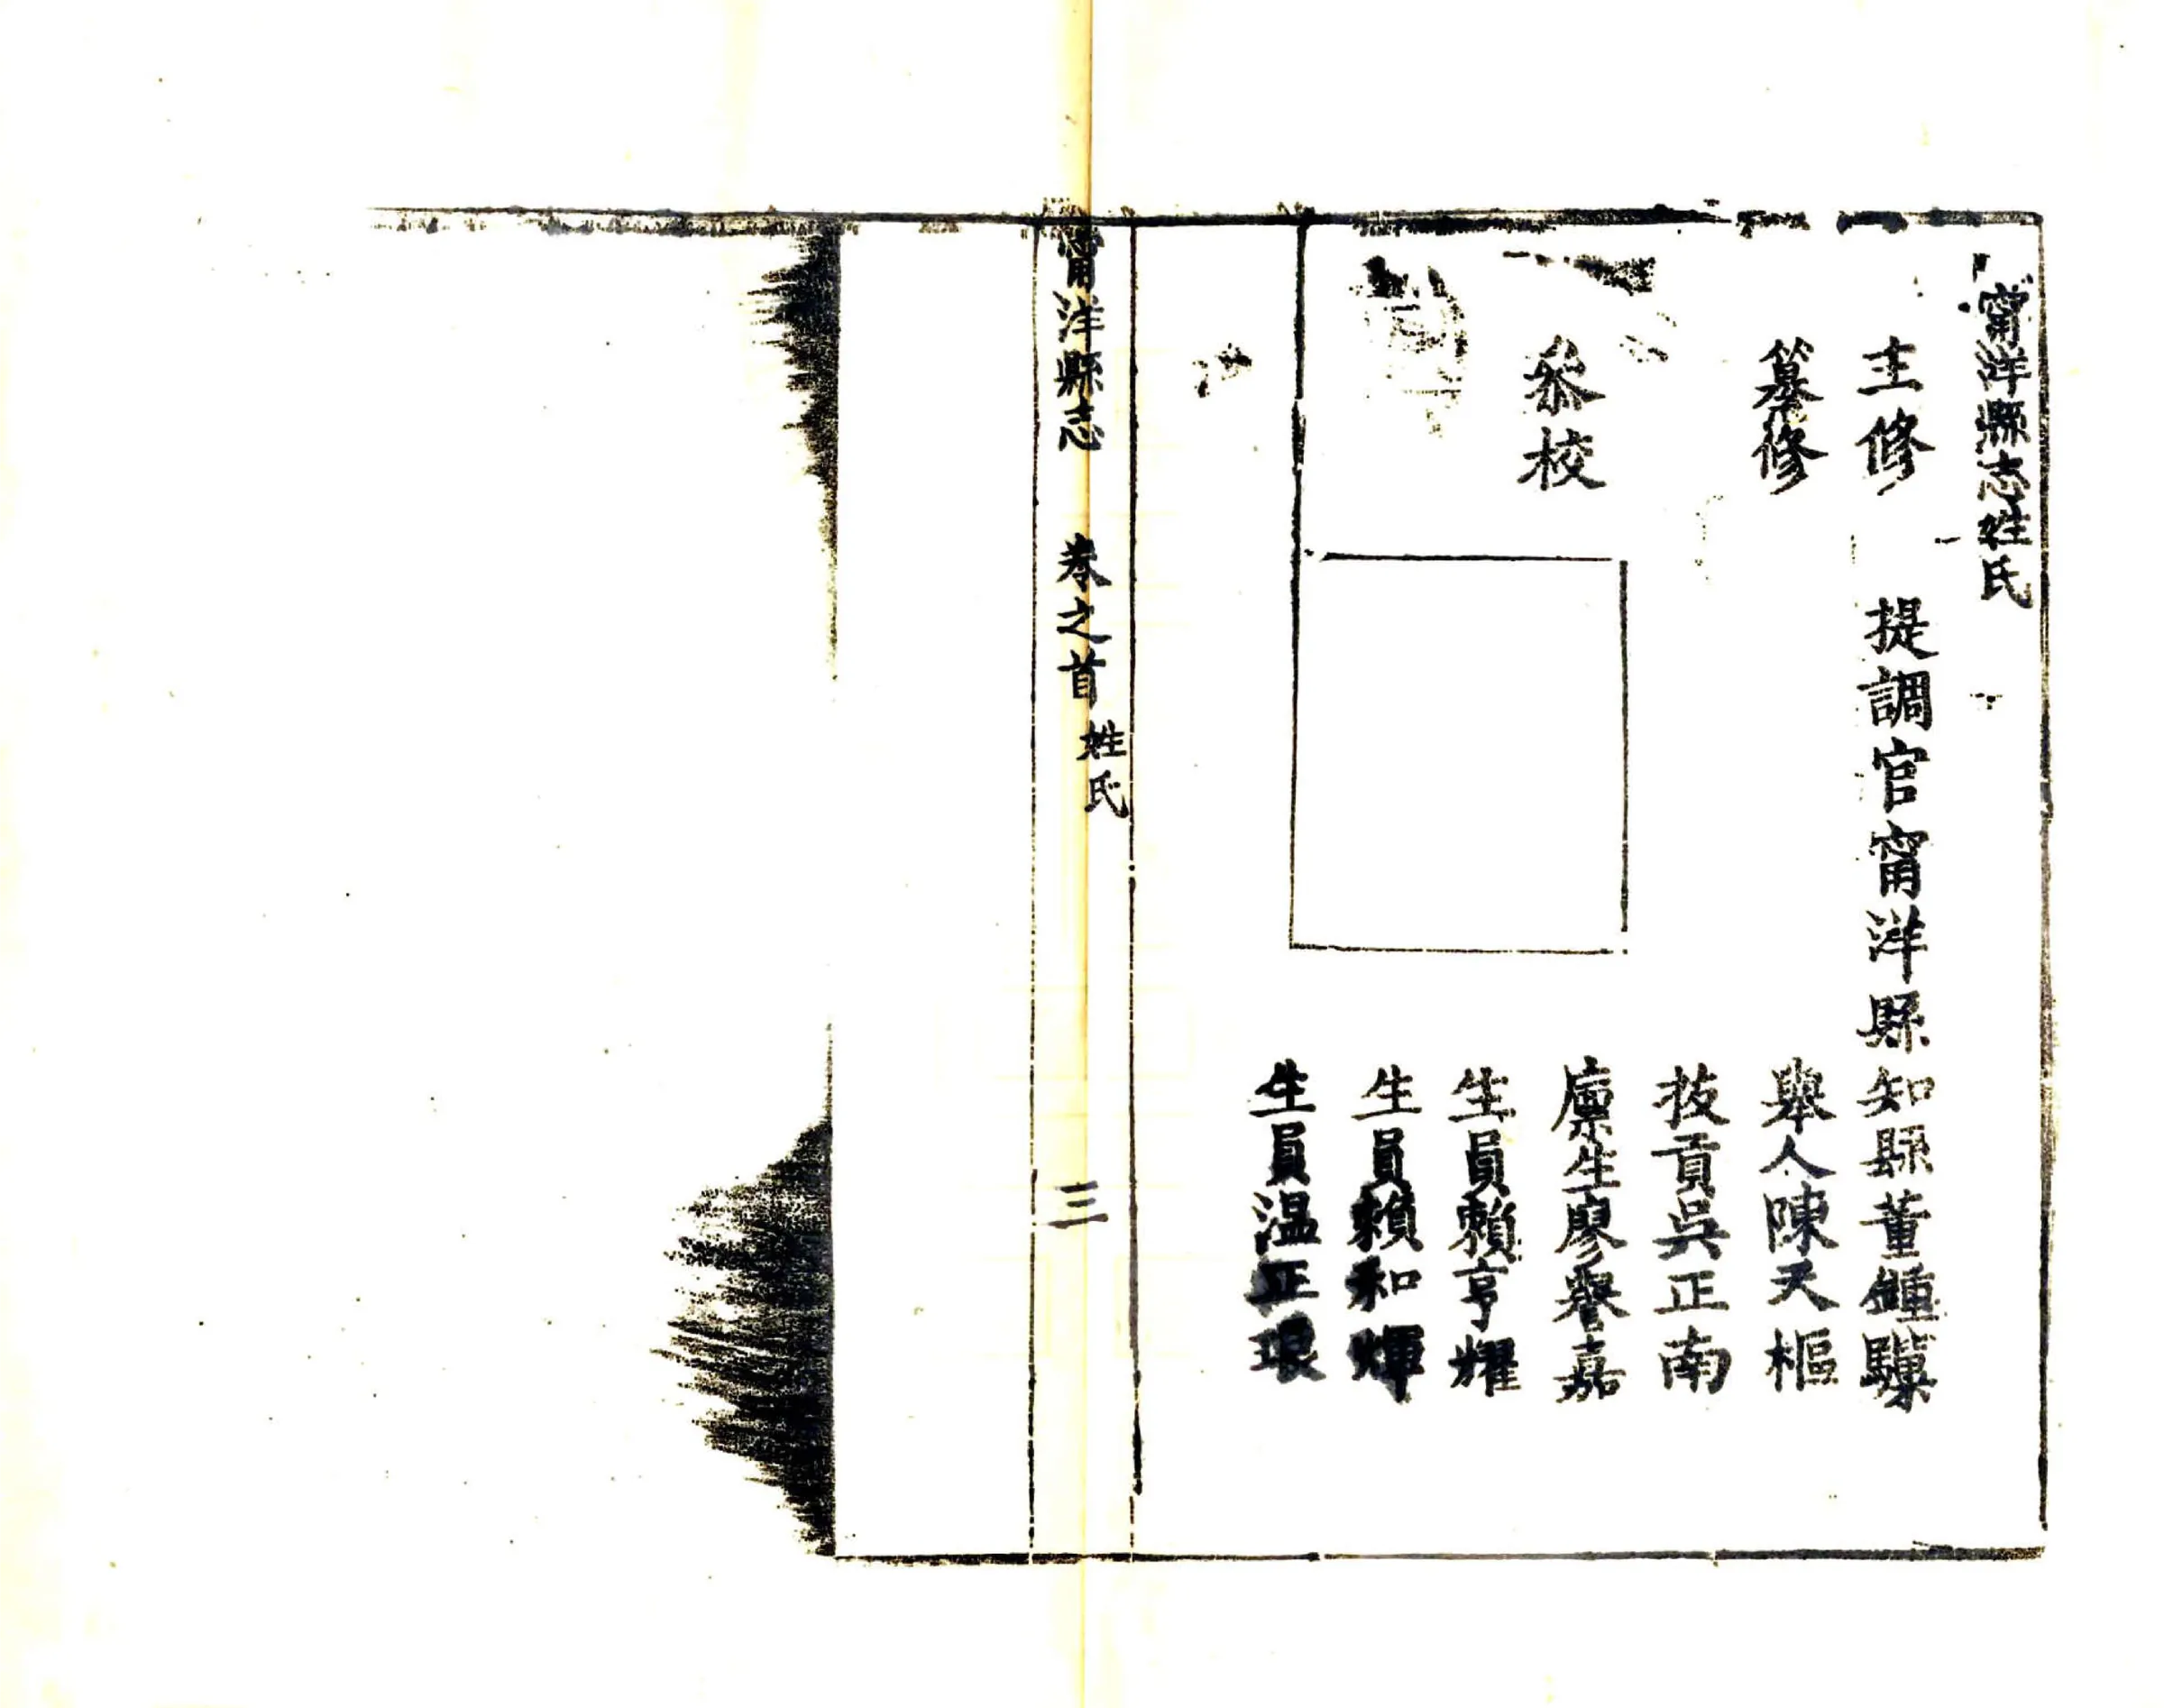 甯洋縣志姓氏
主修　提調官甯洋縣知縣董鍾驥
纂修　舉人陳天樞
拔貢吳正南
叅校　廪生廖譽嘉
生員賴亨耀
生員賴和輝
生員温正琅
甯洋縣志　卷之首　姓氏　三